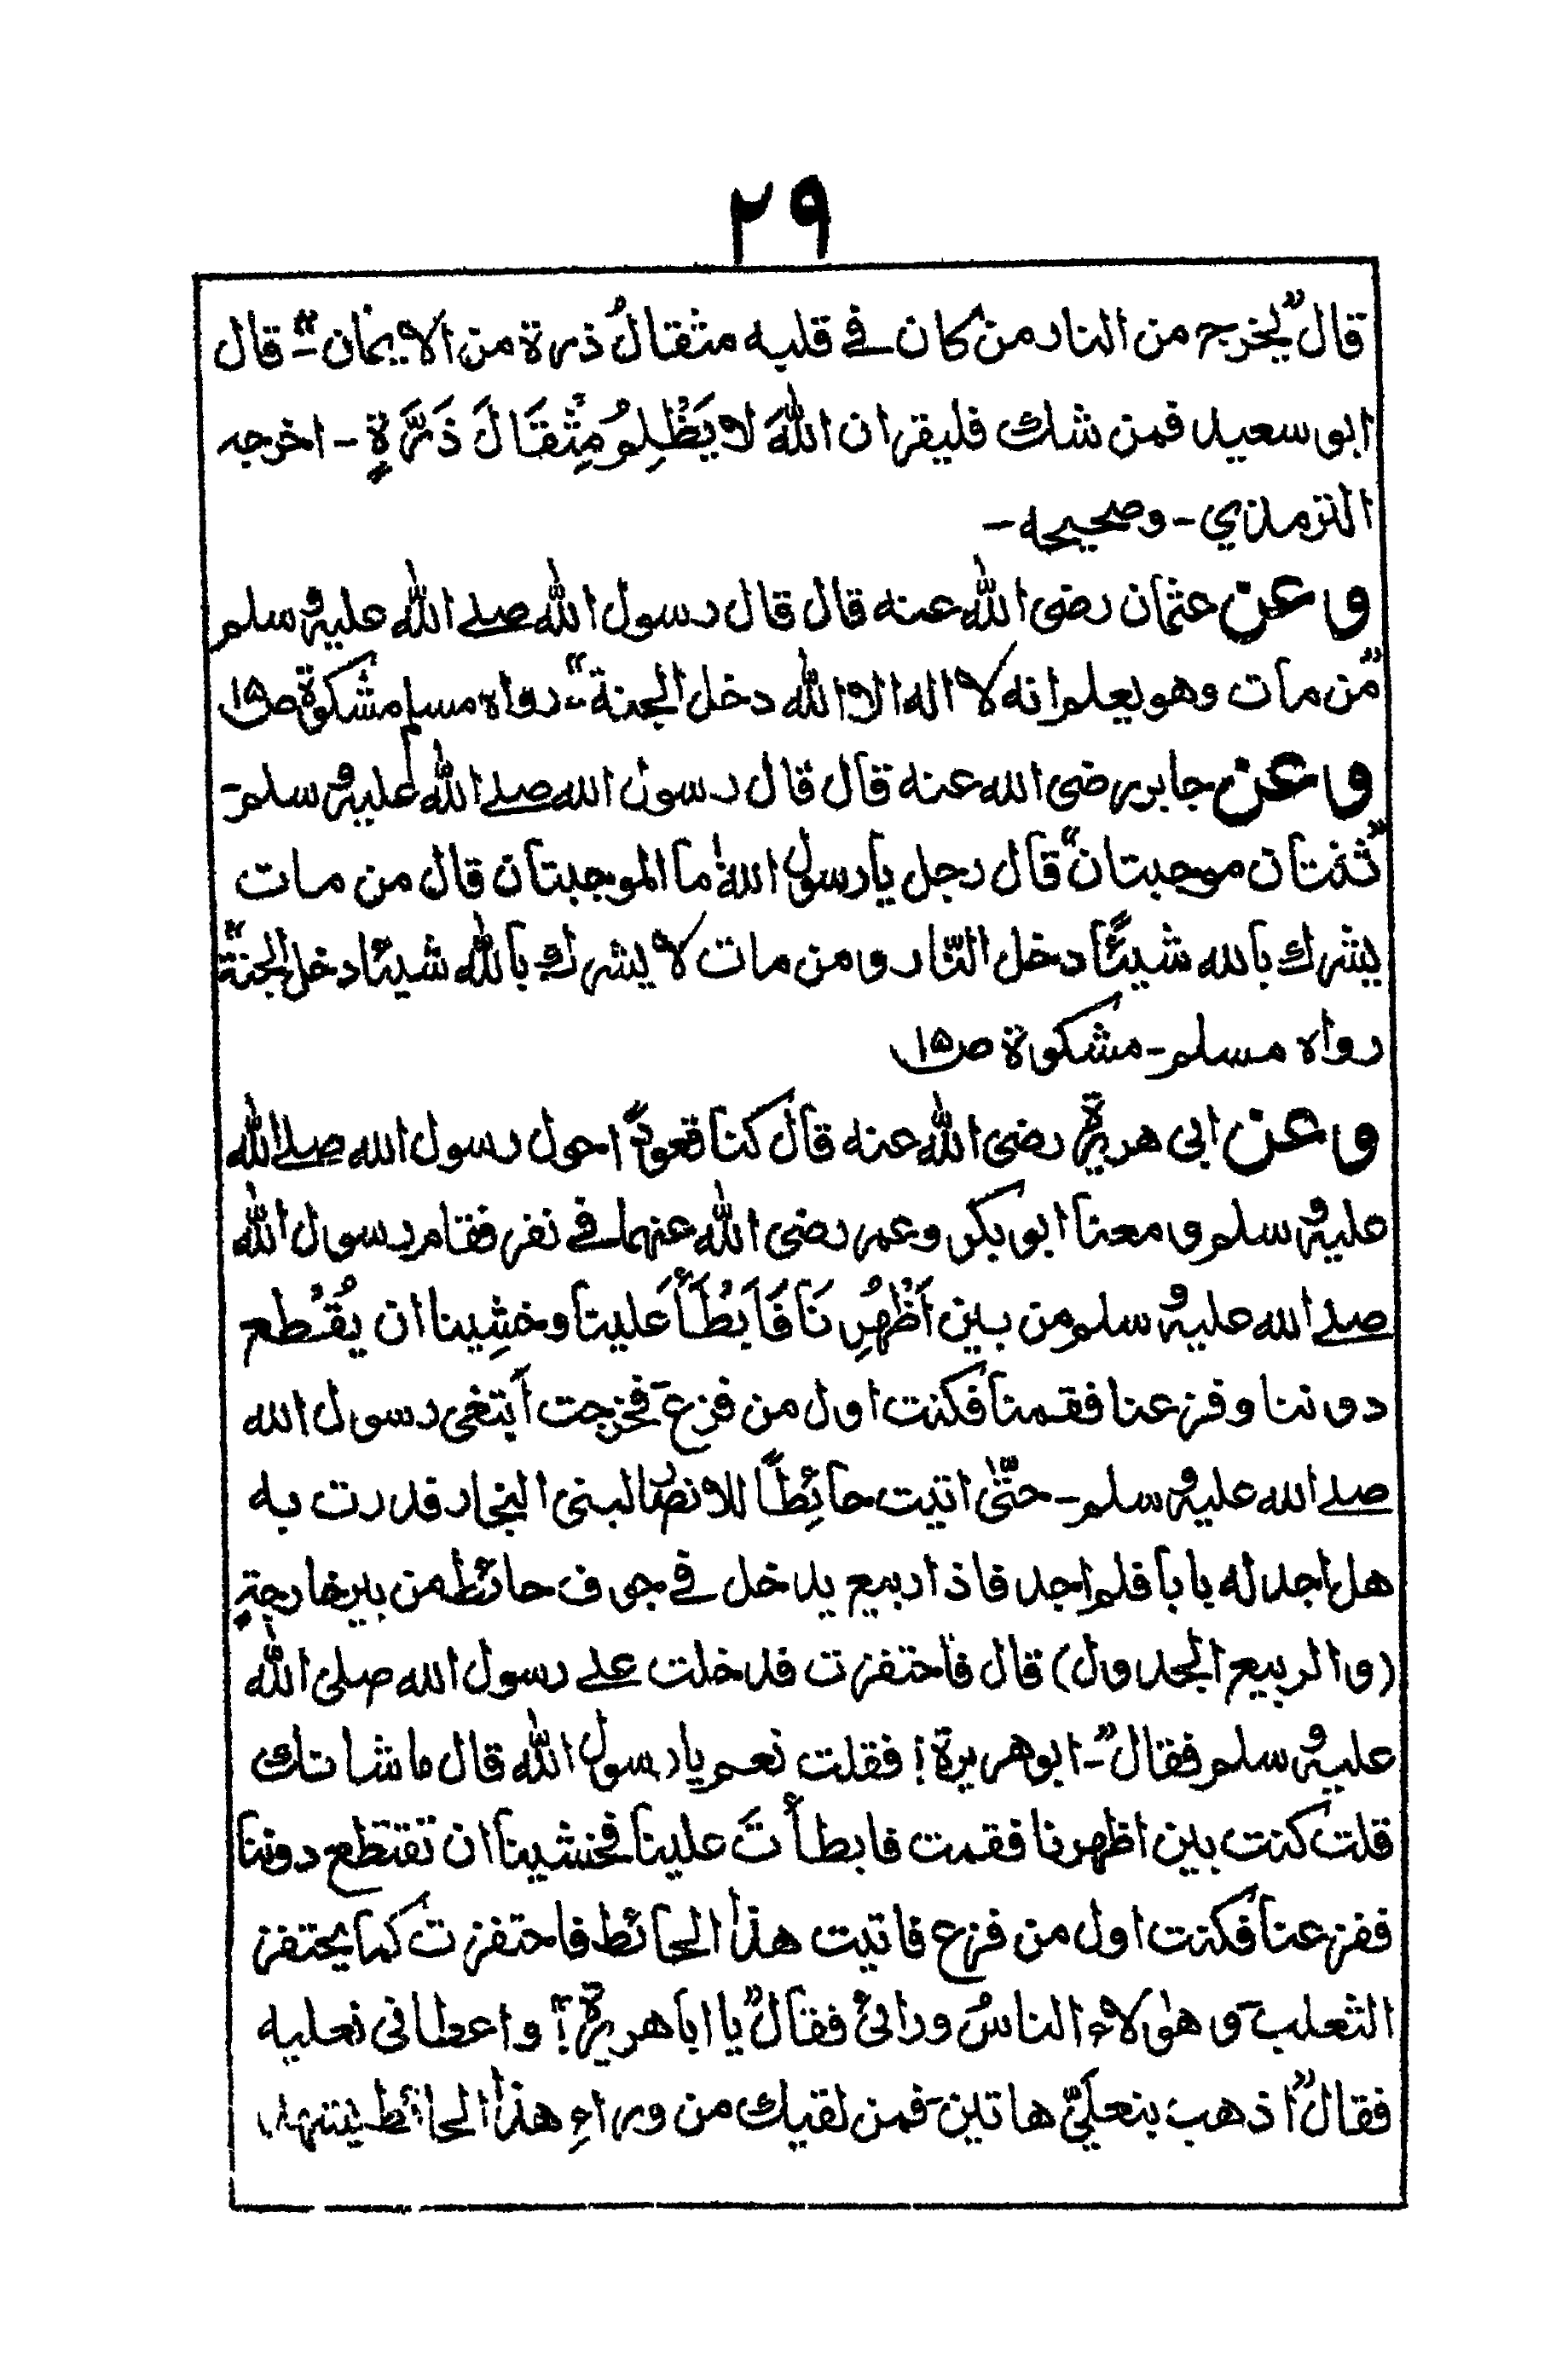 ۲۹
قال ”يخرج من النار من كان في قلبه مثقالُ ذرة من الايمان“ ۔ قال
ابو سعيد فمن شك فليقرا ان اللهَ لا يَظْلِمُ مِثْقَالَ ذَرَّةٍ - اخرجه
الترمذي - وصحيحه -
وعن عثمان رضى الله عنه قال قال رسول الله صلے الله عليه وسلم
”من مات وهو يعلم انه لا اله الا الله دخل الجنة“ ۔ رواه مسلم مشكوة ص۱۵
وعن جابر رضى الله عنه قال قال رسول الله صلے الله عليه وسلم-
”ثنتان موجبتان“ قال رجل يا رسول الله ما الموجبتان قال من مات
يشرك بالله شيئًا دخل النّار ومن مات لا يشرك بالله شيئا دخل الجنة“
رواه مسلم - مشكوة ص۱۵
وعن ابى هريرة رضى الله عنه قال كنا قعودًا حول رسول الله صلے الله
عليه وسلم ومعنا ابو بكر وعمر رضى الله عنهما فے نفر فقام رسول الله
صلے الله عليه وسلم من بين اَظْهُرِنَا فَاَبْطَأَ عَلينا وخشِينا ان يُقْتطع
دوننا وفزعنا فقمنا فكنت اول من فزع- فخرجت أبتغى رسول الله
صلے الله عليه وسلم - حتّٰى اتيت حائِطًا للانصار لبنى النجار فدرت به
هل اجد له بابا فلم اجد فاذا ربيع يدخل فے جوف حائط من بير خارجةٍ
(والربيع الجدول) قال فاحتفزت فدخلت علے رسول الله صلى الله
عليه وسلم فقال ”- ابو هريرة! فقلت نعم يا رسول الله قال ما شانك
قلت كنت بين اظهرنا فقمت فابطأتَ علينا فخشينا ان تقتطع دوننا
ففزعنا فكنت اول من فزع فاتيت هذا الحائط فاحتفزت كما يحتفز
الثعلب- وهؤلاء الناسُ ورائى فقال ”يا ابا هريرة! واعطانى نعليه
فقال ”اذهب بنعلَيّ هاتين- فمن لقيك من وراءِ هذا الحائط يشهد